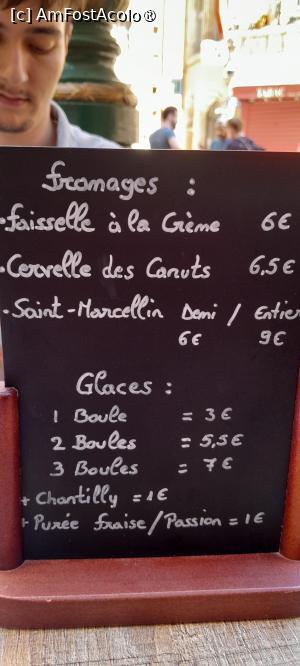 [c] AmFostAcolo®
Fromages :
• Faisselle à la Crème 6€
• Cervelle des Canuts 6,5€
• Saint-Marcellin Demi / Entier
6€ 9€
Glaces :
1 Boule = 3€
2 Boules = 5,5€
3 Boules = 7€
+ Chantilly = 1€
+ Purée fraise/Passion = 1€